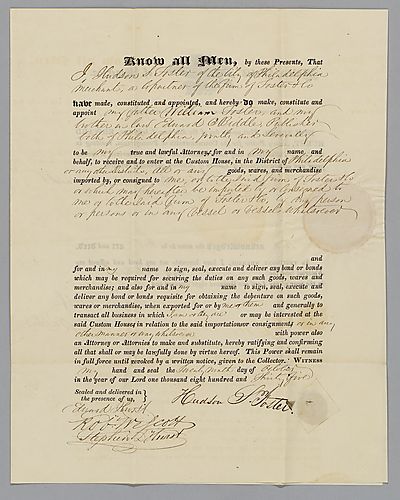 Know all Men, by these Presents, That
I, Hudson S. Foster of the City of Philadelphia
Merchant, a Copartner of the Firm of Foster & Co
have made, constituted and appointed, and hereby do make, constitute and
appoint my father William Foster, and my
brother in law Edward C. Biddle,
both of Philadelphia, jointly, and severally
to be my true and lawful Attorneys for and in my name, and
behalf, to receive and to enter at the Custom House, in the District of Philadelphia
or any other district, all or any goods, wares, and merchandise
imported by, or consigned to me or to the said firm of Foster & Co
or which may hereafter be imported by or consigned to
me or to the said firm of Foster & Co, by any person
or persons or in any Vessel or Vessels whatsoever
and
for and in my name to sign, seal, execute and deliver any bond or bonds
which may be required for securing the duties on any such goods, wares and
merchandise; and also for and in my name to sign, seal, execute and
deliver any bond or bonds requisite for obtaining the debenture on such goods,
wares or merchandise, when exported for or by me or them and generally to
transact all business in which I am or they are or may be interested at the
said Custom House, in relation to the said importation or consignments or in any
other manner or way whatsoever with power also
an Attorney or Attorneys to make and substitute, hereby ratifying and confirming
all that shall or may be lawfully done by virtue hereof. This Power shall remain
in full force until revoked by a written notice, given to the Collector. Witness
my hand and seal the Twenty Ninth day of October
in the year of our Lord one thousand eight hundred and Thirty Five
Sealed and delivered in
the presence of us,
Hudson S. Foster
Edward Hurst
Robt W. Scott
Stephen L. Hurst